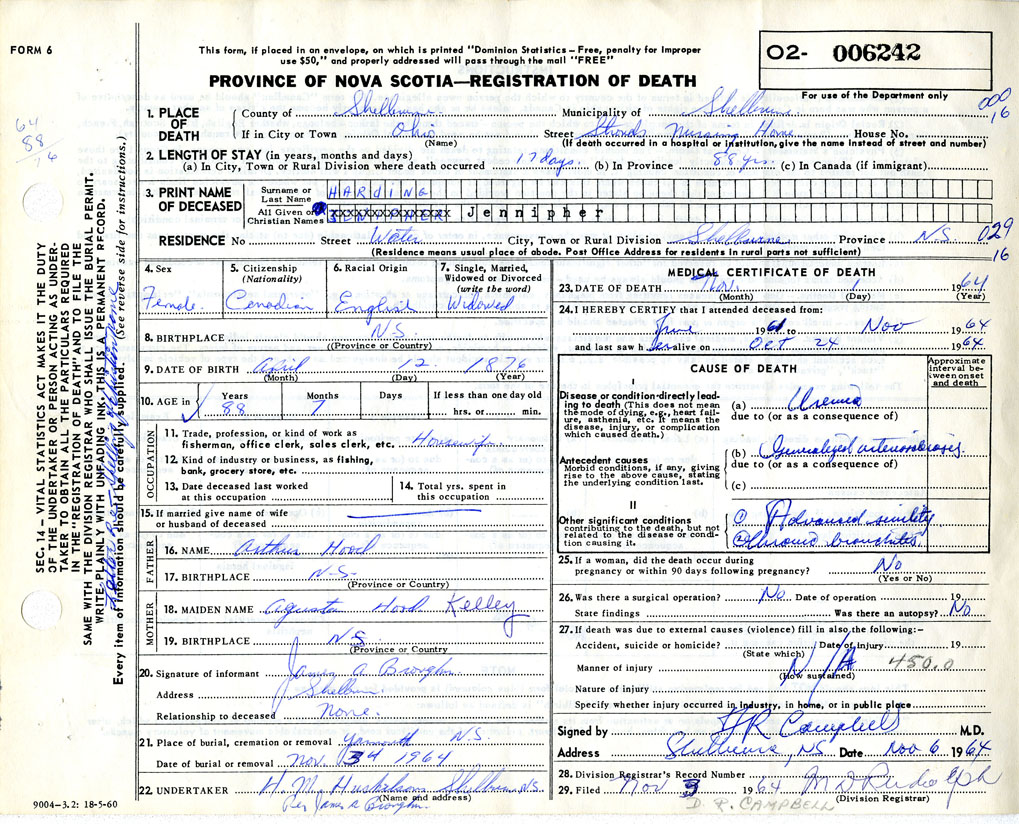 FORM 6
This form, if placed in an envelope, on which is printed "Dominion Statistics – Free, penalty for improper
use $50," and properly addressed will pass through the mail "FREE"
02- 006242
PROVINCE OF NOVA SCOTIA—REGISTRATION OF DEATH
For use of the Department only
64
88
16
000
16
1. PLACE OF DEATH
County of Shelburne Municipality of Shelburne
If in City or Town Ohio Street Nursing Home House No.
(Name) (If death occurred in a hospital or institution, give the name instead of street and number)
2. LENGTH OF STAY (in years, months and days)
(a) In City, Town or Rural Division where death occurred 17 days. (b) In Province 88 yrs. (c) In Canada (if immigrant)
3. PRINT NAME OF DECEASED
Surname or Last Name HARDING
All Given or Christian Names xxxxxxxxxxxxxxxx Jennipher
RESIDENCE No Street Water City, Town or Rural Division Shelburne Province N.S.
029
16
(Residence means usual place of abode. Post Office Address for residents in rural parts not sufficient)
4. Sex
Female
5. Citizenship
(Nationality)
Canadian
6. Racial Origin
English
7. Single, Married,
Widowed or Divorced
(write the word)
Widowed
8. BIRTHPLACE N.S.
(Province or Country)
9. DATE OF BIRTH April 12 1876
(Month) (Day) (Year)
10. AGE in
Years Months Days If less than one day old
88 7 hrs. or min.
OCCUPATION
11. Trade, profession, or kind of work as
fisherman, office clerk, sales clerk, etc. Housewife
12. Kind of industry or business, as fishing,
bank, grocery store, etc.
13. Date deceased last worked
at this occupation
14. Total yrs. spent in
this occupation
15. If married give name of wife
or husband of deceased
FATHER
16. NAME Arthur Hood
17. BIRTHPLACE N.S.
(Province or Country)
MOTHER
18. MAIDEN NAME Agusta Hood Kelley
19. BIRTHPLACE N.S.
(Province or Country
20. Signature of informant James A
Address Shelburne
Relationship to deceased None.
21. Place of burial, cremation or removal Yarmouth N.S.
Date of burial or removal Nov. 4 1964
22. UNDERTAKER H. M. Huskilson Shelburne N.S.
(Name and address)
Per James A
9004–3.2: 18-5-60
MEDICAL CERTIFICATE OF DEATH
23. DATE OF DEATH Nov. 1 1964
(Month) (Day) (Year)
24. I HEREBY CERTIFY that I attended deceased from:
June 1961 to Nov 1964
and last saw her alive on Oct 24 1964
CAUSE OF DEATH
Approximate
interval be-
tween onset
and death
I
Disease or condition directly lead-
ing to death (This does not mean
the mode of dying, e.g., heart fail-
ure, asthenia, etc. It means the
disease, injury, or complication
which caused death.)
(a) Uremia
due to (or as a consequence of)
Antecedent causes
Morbid conditions, if any, giving
rise to the above cause, stating
the underlying condition last.
(b) Generalized arteriosclerosis
due to (or as a consequence of)
(c)
II
Other significant conditions
contributing to the death, but not
related to the disease or condi-
tion causing it.
① Advanced senility
② Chronic bronchitis
25. If a woman, did the death occur during
pregnancy or within 90 days following pregnancy? No
(Yes or No)
26. Was there a surgical operation? No Date of operation 19
State findings Was there an autopsy? No
27. If death was due to external causes (violence) fill in also the following:–
Accident, suicide or homicide? Date of injury 19
(State which)
Manner of injury N/A 450.0
(How sustained)
Nature of injury
Specify whether injury occurred in industry, in home, or in public place
Signed by D R Campbell M.D.
Address Shelburne, NS Date Nov 6 1964
28. Division Registrar's Record Number
29. Filed Nov 3 1964
(Division Registrar)
D. R. CAMPBELL
SEC. 14 – VITAL STATISTICS ACT MAKES IT THE DUTY
OF THE UNDERTAKER OR PERSON ACTING AS UNDER-
TAKER TO OBTAIN ALL THE PARTICULARS REQUIRED
IN THE "REGISTRATION OF DEATH" AND TO FILE THE
SAME WITH THE DIVISION REGISTRAR WHO SHALL ISSUE THE BURIAL PERMIT.
WRITE PLAINLY WITH UNFADING INK. THIS IS A PERMANENT RECORD.
Every item of information should be carefully supplied. (See reverse side for instructions.)